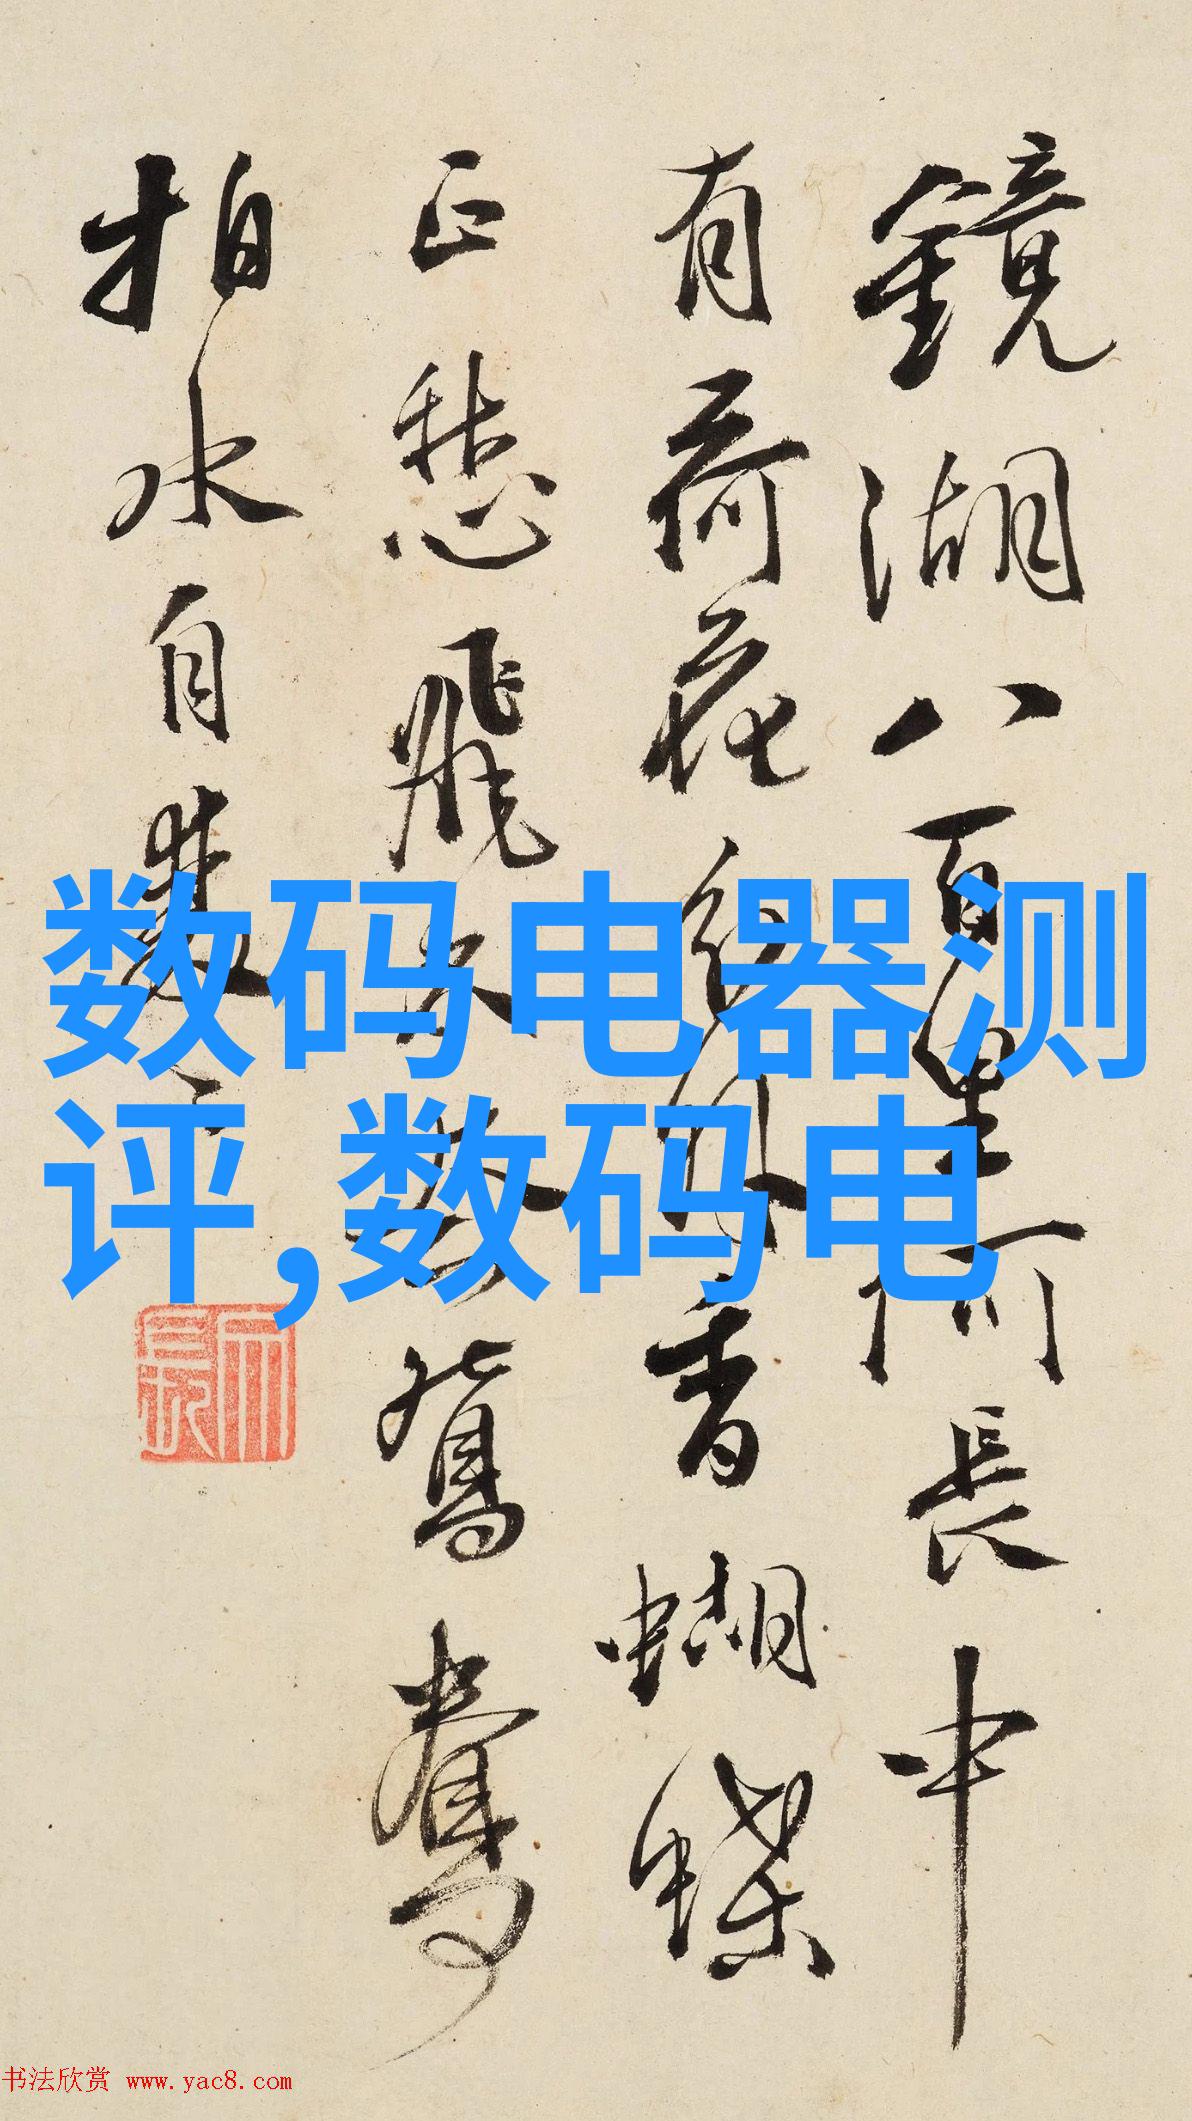 鏡湖八百里何長中
有荷花分外香蝴蝶
正愁飛不鴛鴦
拍水自雙
数码电器测
评,数码电
书法欣赏 www.yac8.com